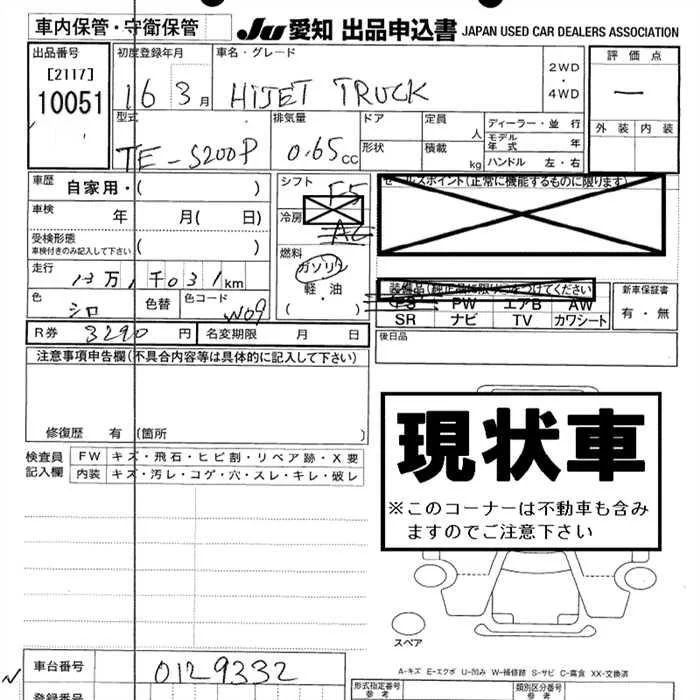 車内保管・守衛保管
JU 愛知 出品申込書 JAPAN USED CAR DEALERS ASSOCIATION
出品番号 初度登録年月 車名・グレード 評価点
[2117]
10051
16 3月 HIJET TRUCK
2WD
・
4WD
—
外装 内装
型式 排気量 ドア 定員 人 ディーラー・並行
モデル年式 年
形状 積載 kg ハンドル 左・右
TE-S200P 0.65cc
車歴 自家用・( )
シフト F5
セールスポイント(正常に機能するものに限ります)
車検 年 月( 日)
冷房 AC
受検形態
車検付きのみ記入して下さい ( )
燃料
ガソリン
軽・油
( )
走行 13万1千031km
色 シロ 色替 色コード W09
装備品(純正品に限り○をつけてください) 新車保証書
PS PW エアB AW 有・無
SR ナビ TV カワシート
R券 3290円 名変期限 月 日
後日品
注意事項申告欄(不具合内容等は具体的に記入して下さい)
修復歴 有 (箇所 )
検査員記入欄
FW キズ・飛石・ヒビ割・リペア跡・X要
内装 キズ・汚レ・コゲ・穴・スレ・キレ・破レ
現状車
※このコーナーは不動車も含み
ますのでご注意下さい
スペア
A-キズ E-エクボ U-凹み W-補修跡 S-サビ C-腐食 XX-交換済
車台番号 0129332
登録番号
形式指定番号 参考
類別区分番号 参考